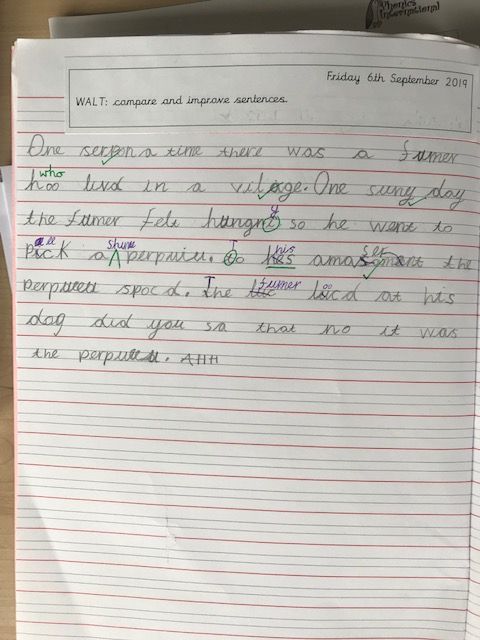 Phonics
International
Friday 6th September 2019
WALT: compare and improve sentences.
One serpon a time there was a fumer
who
hoo livd in a vilage. One suny day
y
the fumer felt hungri so he went to
all shine
pick a perpuiu. T his
To hes amasment the
perpuuu spoc d. The fumer loocd at his
dog did you sa that no it was
the perpuuu. AHH